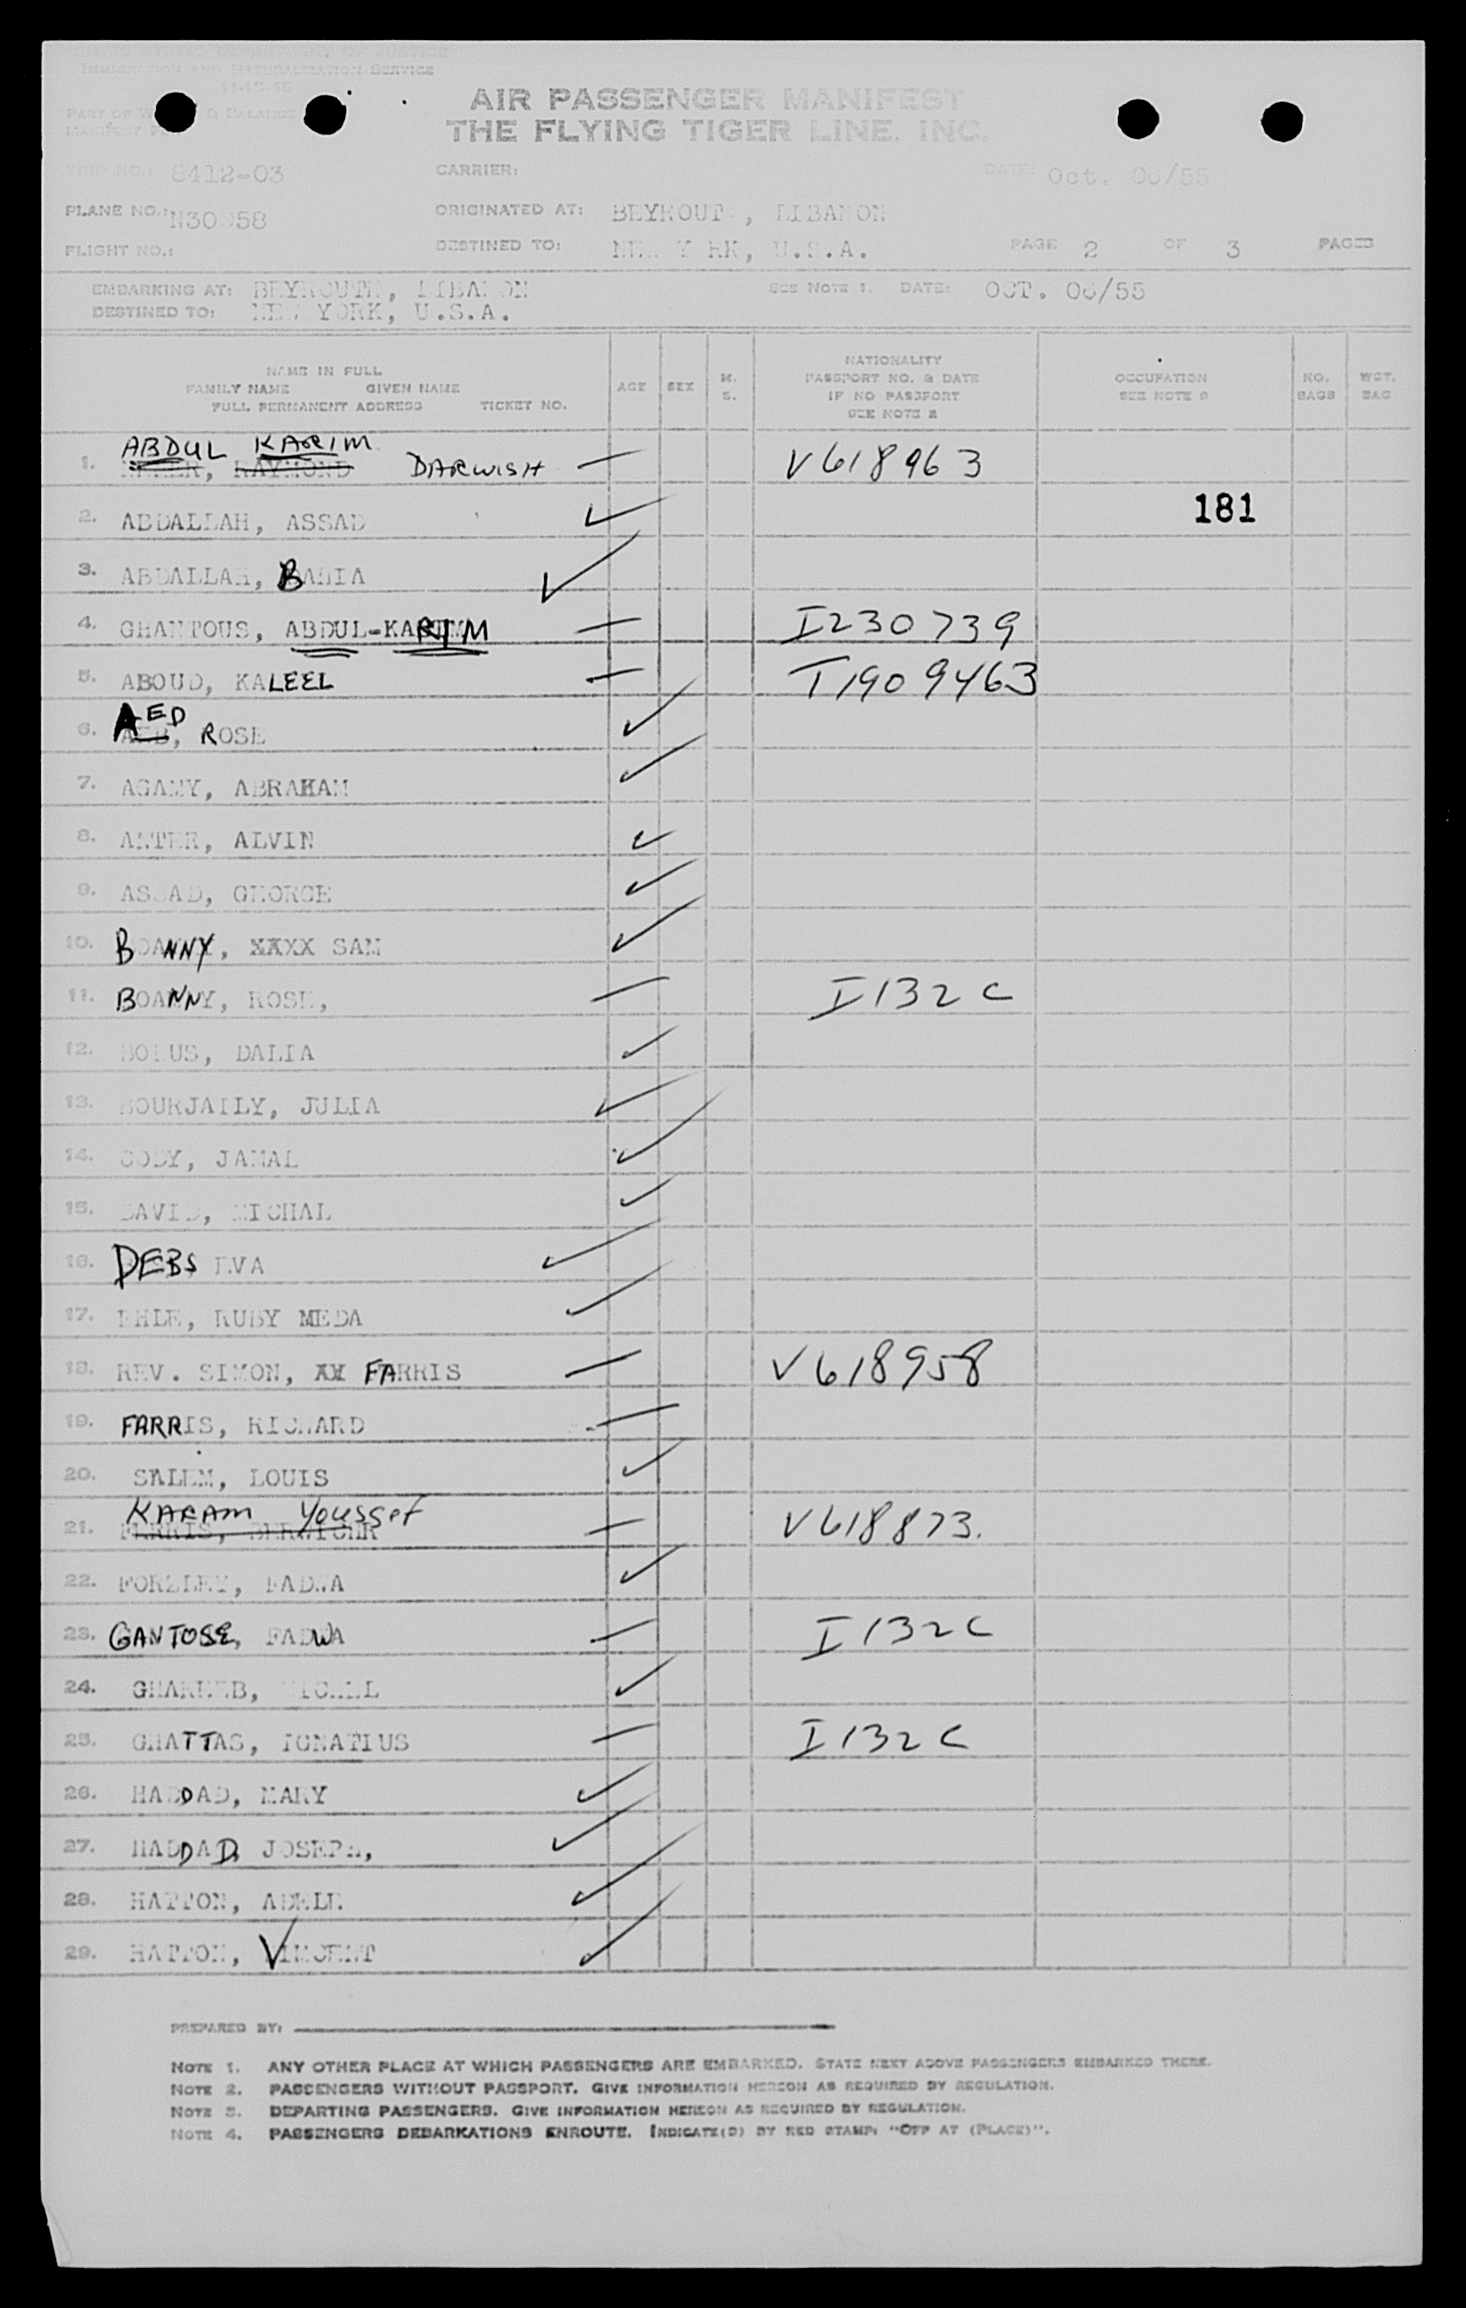 UNITED STATES DEPARTMENT OF JUSTICE
IMMIGRATION AND NATURALIZATION SERVICE
AIR PASSENGER MANIFEST
THE FLYING TIGER LINE, INC.
MANIFEST
TRIP NO.: 8412-03 CARRIER: DATE: Oct. 06/55
PLANE NO.: ORIGINATED AT: BEYROUTH, LIBANON
FLIGHT NO.: DESTINED TO: NEW YORK, U.S.A. PAGE 2 OF 3 PAGES
EMBARKING AT: BEYROUTH, LIBANON SEE NOTE 1. DATE: OCT. 06/55
DESTINED TO: NEW YORK, U.S.A.
NAME IN FULL
FAMILY NAME GIVEN NAME
FULL PERMANENT ADDRESS TICKET NO.
AGE SEX M. S.
NATIONALITY
PASSPORT NO. & DATE
IF NO PASSPORT
SEE NOTE 2
OCCUPATION
SEE NOTE 3
NO. BAGS
WGT. BAG
ABDUL KARIM
1. RAYMOND DARWISH — V618963
2. ABDALLAH, ASSAD ✓ 181
3. ABDALLAH, BADIA ✓
4. GHANTOUS, ABDUL-KARIM — I230739
5. ABOUD, KALEEL — T1909463
6. AED, ROSE ✓
7. AGAMY, ABRAHAM ✓
8. ANTER, ALVIN ✓
9. ASSAD, GEORGE ✓
10. BOANNY, XXXX SAM ✓
11. BOANNY, ROSE, — I132C
12. BOLUS, DALIA ✓
13. BOURJAILY, JULIA ✓
14. CODY, JAMAL ✓
15. DAVID, MICHAL ✓
16. DEBS EVA ✓
17. EHLE, RUBY MEDA ✓
18. REV. SIMON, FARRIS — V618958
19. FARRIS, RICHARD —
20. SALEM, LOUIS ✓
KARAM Youssef
21. FERRIS, — V618873.
22. FORZLEY, FADWA ✓
23. GANTOSE, FADWA — I132C
24. GHAREEB, MICHEL ✓
25. GHATTAS, IGNATIUS — I132C
26. HADDAD, MARY ✓
27. HADDAD, JOSEPH, ✓
28. HATTON, ADELE ✓
29. HATTON, VINCENT ✓
PREPARED BY:
NOTE 1. ANY OTHER PLACE AT WHICH PASSENGERS ARE EMBARKED. STATE NEXT ABOVE PASSENGERS EMBARKED THERE.
NOTE 2. PASSENGERS WITHOUT PASSPORT. GIVE INFORMATION HEREON AS REQUIRED BY REGULATION.
NOTE 3. DEPARTING PASSENGERS. GIVE INFORMATION HEREON AS REQUIRED BY REGULATION.
NOTE 4. PASSENGERS DEBARKATIONS ENROUTE. INDICATE(D) BY RED STAMP: "OFF AT (PLACE)".